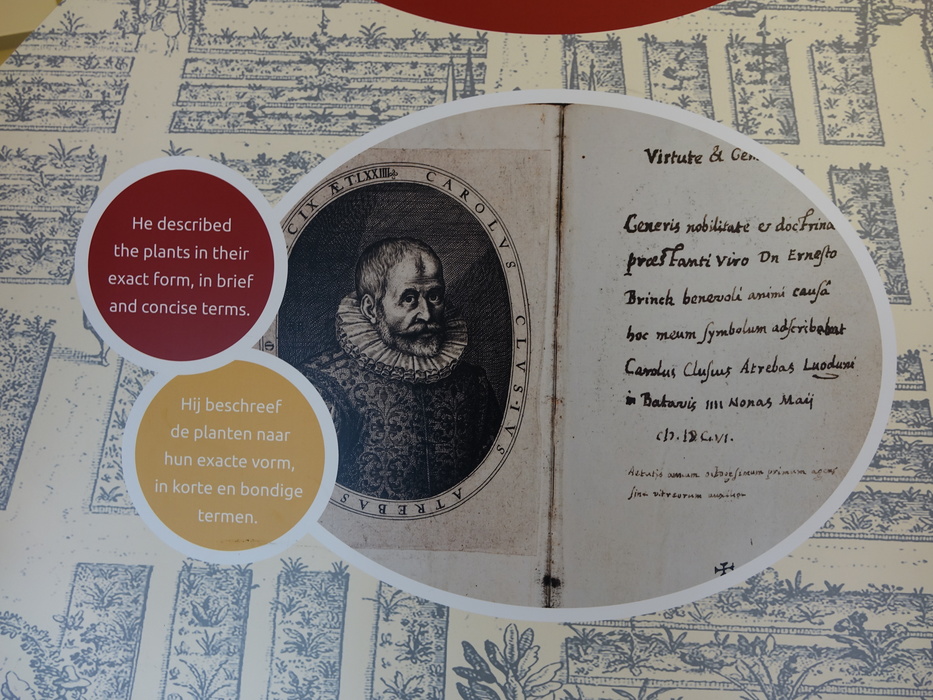 He described
the plants in their
exact form, in brief
and concise terms.
Hij beschreef
de planten naar
hun exacte vorm,
in korte en bondige
termen.
CIX ÆT. LXXIIII. CAROLVS CLVSIVS ATREBAS
Virtute & Gen
Generis nobilitate et doctrina
præstanti viro Dn Ernesto
Brinck benevoli animi causâ
hoc meum symbolum adscribebat
Carolus Clusius Atrebas Lugduni
in Batavis IIII Nonas Maij
Aetatis annum octogesimum primum
sine vitreorum auxilio